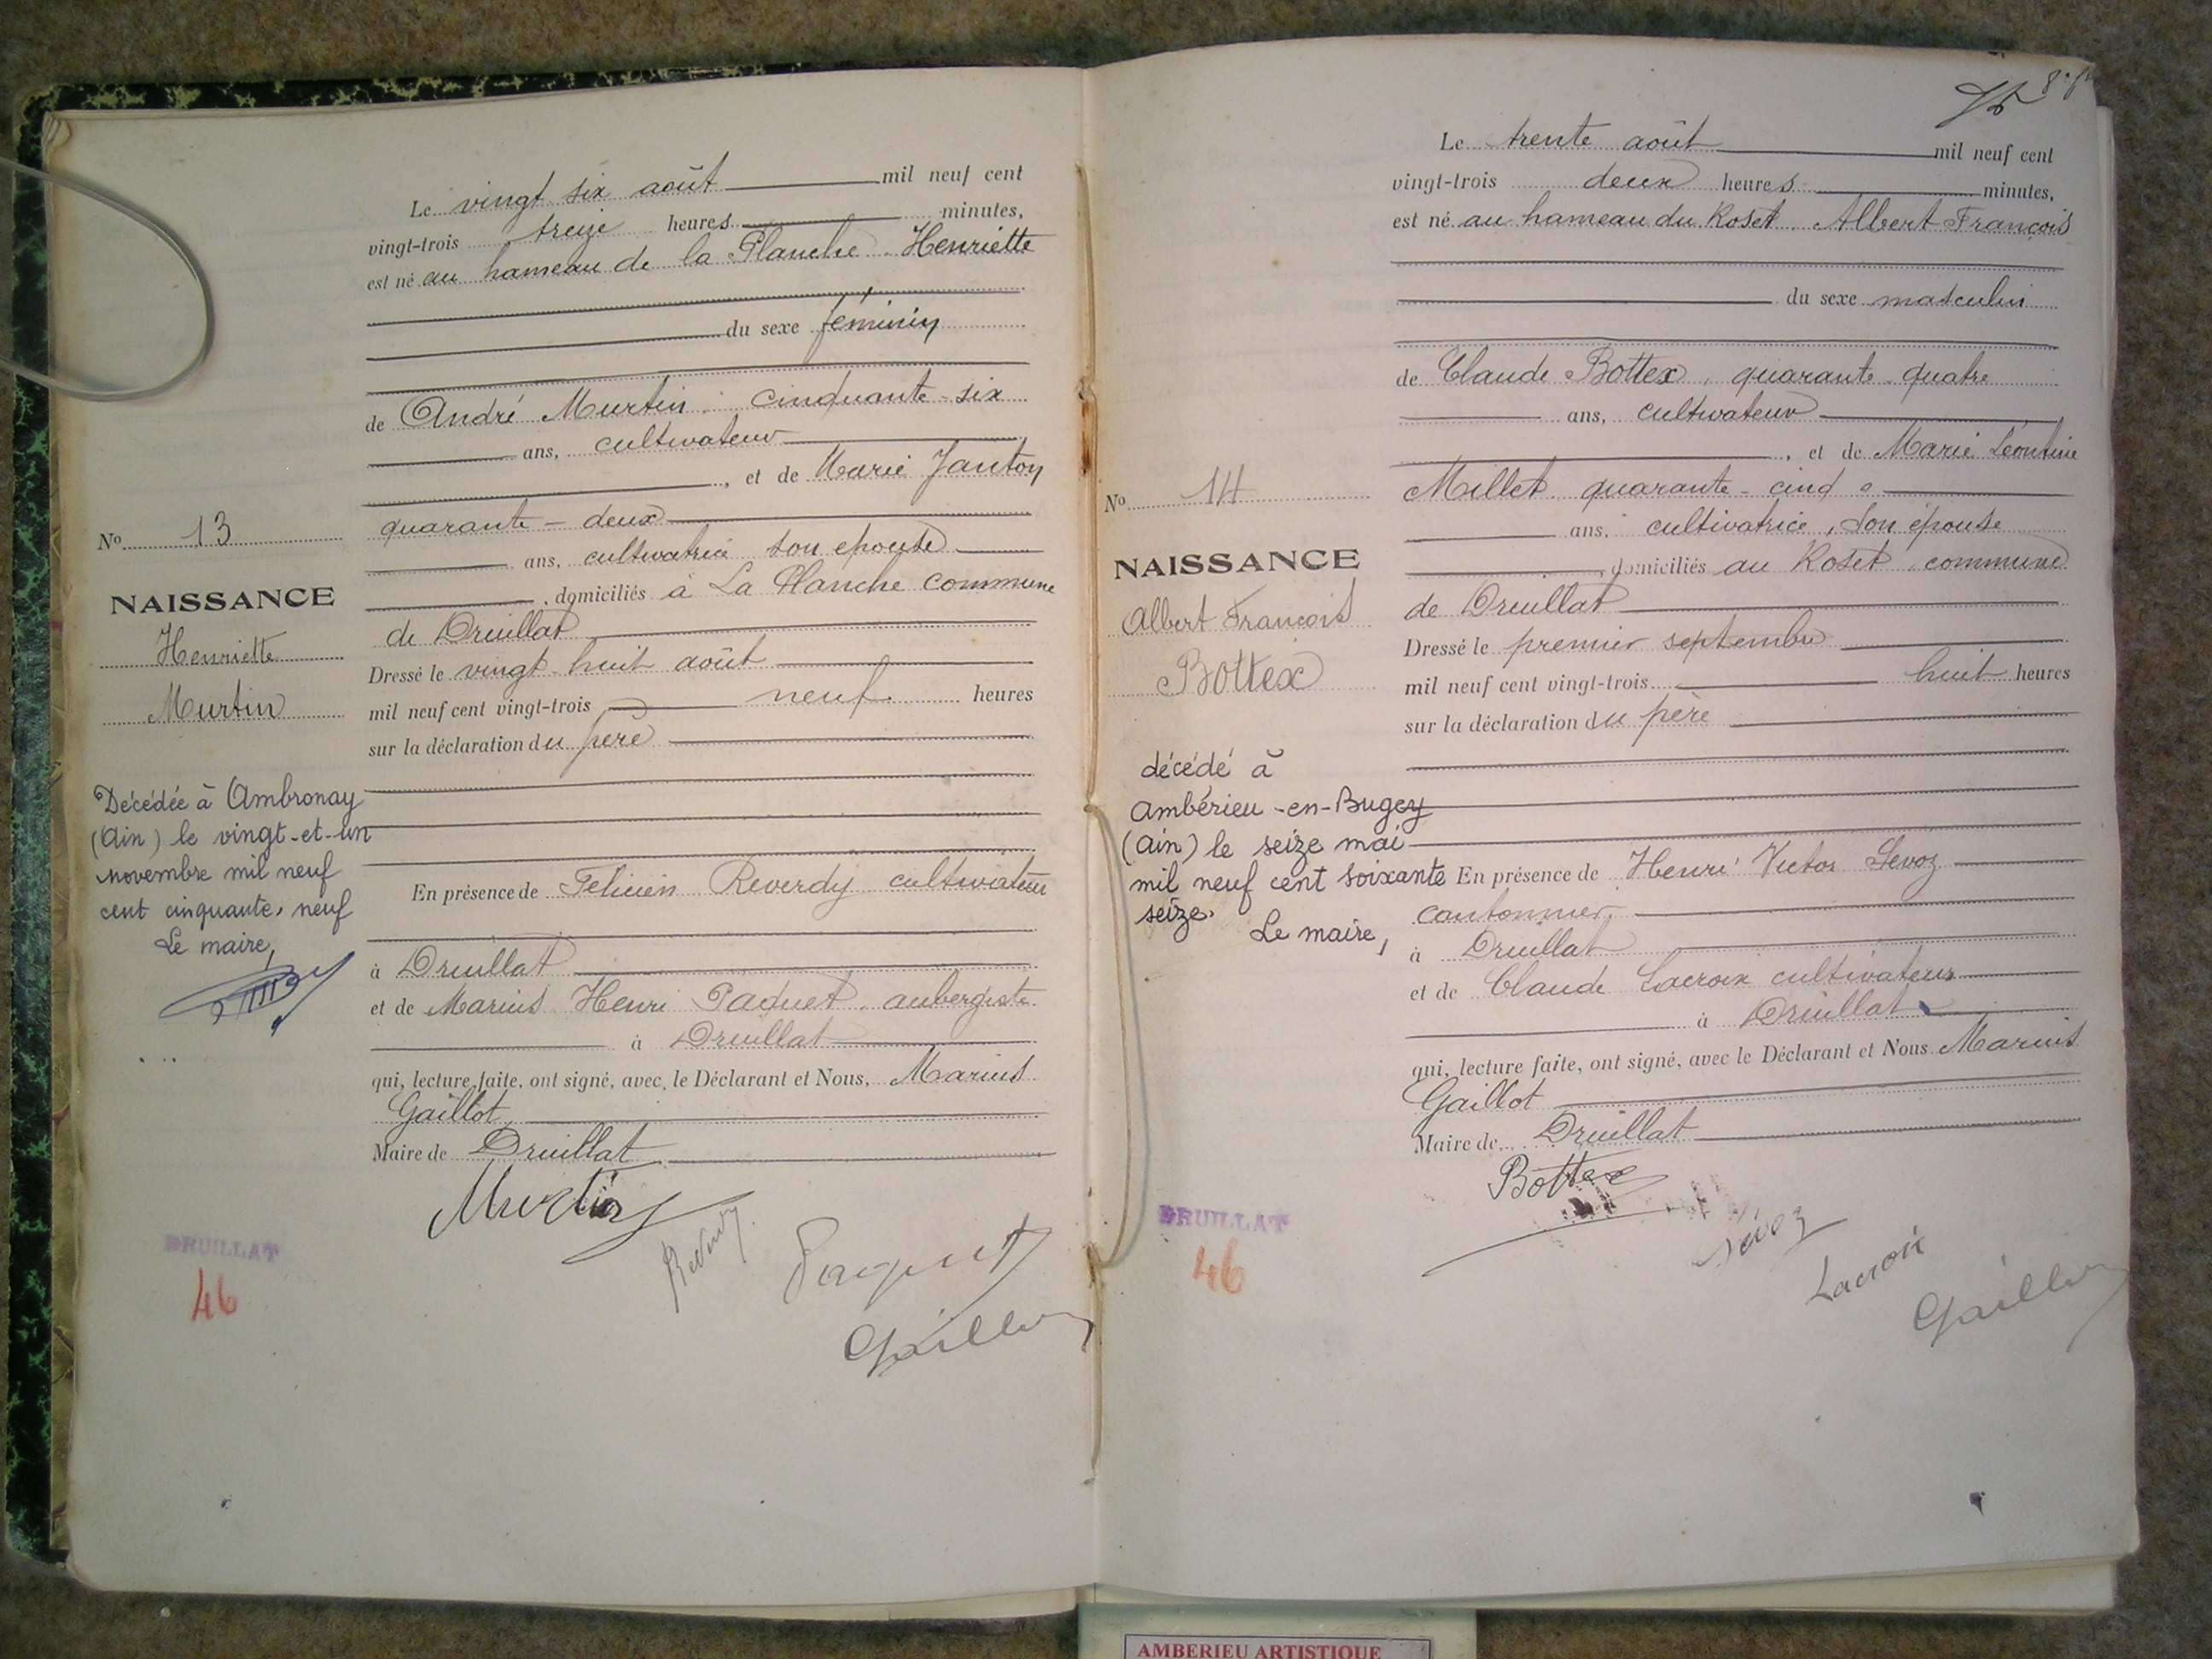 Le vingt six août mil neuf cent
vingt-trois treize heures minutes,
est né au hameau de la Planche Henriette
du sexe féminin
de André Murtin cinquante-six
ans, cultivateur
, et de Marie Janton
quarante-deux
ans, cultivatrice son épouse
, domiciliés à La Planche commune
de Druillat
Dressé le vingt-huit août
mil neuf cent vingt-trois neuf heures
sur la déclaration du père
En présence de Félicien Reverdy cultivateur
à Druillat
et de Marius Henri Paquet aubergiste
à Druillat
qui, lecture faite, ont signé, avec le Déclarant et Nous, Marius
Gaillot
Maire de Druillat
Murtin
Reverdy
Paquet
Gaillot
No 13
NAISSANCE
Henriette
Murtin
Décédée à Ambronay
(Ain) le vingt-et-un
novembre mil neuf
cent cinquante-neuf
Le maire,
DRUILLAT
46
Le trente août mil neuf cent
vingt-trois deux heures minutes,
est né au hameau du Roset Albert François
du sexe masculin
de Claude Bottex, quarante-quatre
ans, cultivateur
, et de Marie Léontine
Millet quarante-cinq
ans, cultivatrice, son épouse
, domiciliés au Roset commune
de Druillat
Dressé le premier septembre
mil neuf cent vingt-trois huit heures
sur la déclaration du père
En présence de Henri Victor
cantonnier
à Druillat
et de Claude Lacroix cultivateur
à Druillat
qui, lecture faite, ont signé, avec le Déclarant et Nous Marius
Gaillot
Maire de Druillat
Bottex
Lacroix
Gaillot
No 14
NAISSANCE
Albert François
Bottex
décédé à
Ambérieu-en-Bugey
(Ain) le seize mai
mil neuf cent soixante
seize.
Le maire,
DRUILLAT
46
AMBERIEU ARTISTIQUE